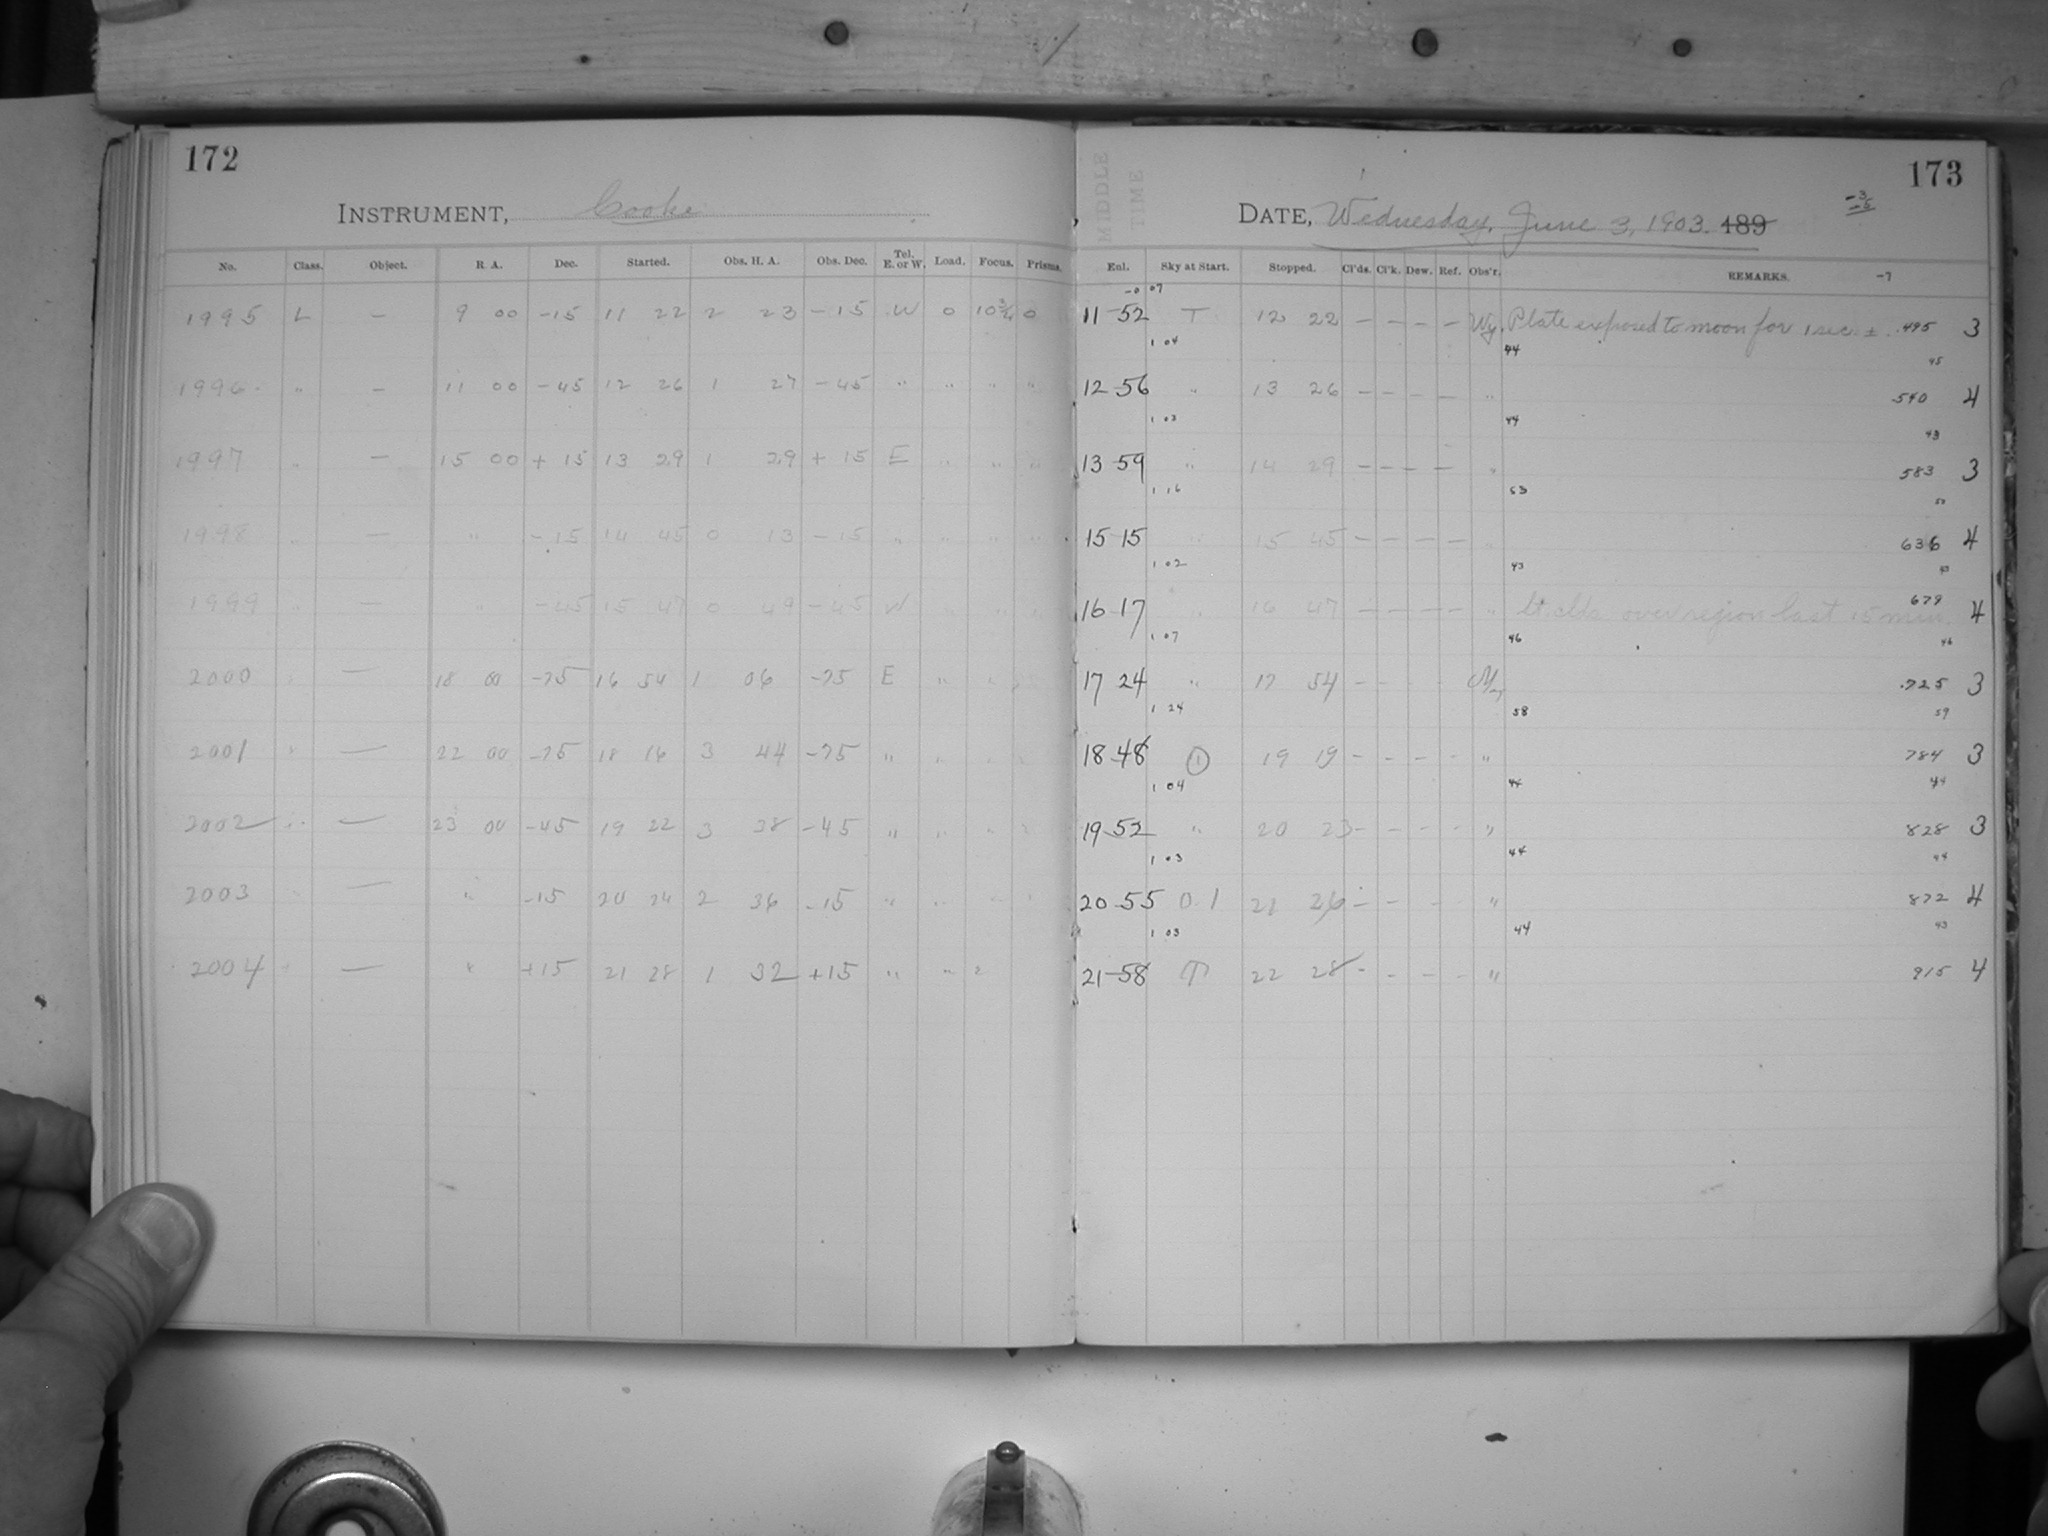 172
INSTRUMENT, Cooke
No. Class. Object. R. A. Dec. Started. Obs. H. A. Obs. Dec. Tel. E. or W. Load. Focus. Prisms.
1995 L — 9 00 -15 11 22 2 23 -15 W 0 10 3/4 0
1996 " — 11 00 -45 12 26 1 27 -45 " " " "
1997 " — 15 00 +15 13 29 1 29 +15 E " " "
1998 " — " -15 14 45 0 13 -15 " " " "
1999 " — " -45 15 47 0 49 -45 W " " "
2000 " — 18 00 -75 16 54 1 06 -75 E " "
2001 " — 22 00 -75 18 16 3 44 -75 " " "
2002 " — 23 00 -45 19 22 3 38 -45 " " "
2003 " — " -15 20 24 2 36 -15 " "
2004 " — " +15 21 28 1 32 +15 " "
173
MIDDLE TIME
-3
-5
DATE, Wednesday, June 3, 1903. 189
Enl. Sky at Start. Stopped. Cl'ds. Cl'k. Dew. Ref. Obs'r. REMARKS. -7
-0 07
11-52 T 12 22 — — — — Wy. Plate exposed to moon for 1 sec. ± .495 3
1 04 44 45
12-56 " 13 26 — — — — " .540 4
1 03 44 43
13-59 " 14 29 — — — — " 583 3
1 16 53 53
15-15 " 15 45 — — — — " 636 4
1 02 43 43
16-17 " 16 47 — — — — " lt. clds. over region last 15 min. 679 4
1 07 46 46
17 24 " 17 54 - - - .725 3
1 24 58 59
18-48 1 19 19 - - - - " 784 3
1 04 44 44
19-52 " 20 23 - - - - " 828 3
1 03 44 44
20-55 0 1 21 26 - - - - " 872 4
1 03 44 43
21-58 T 22 28 - - - - " 915 4